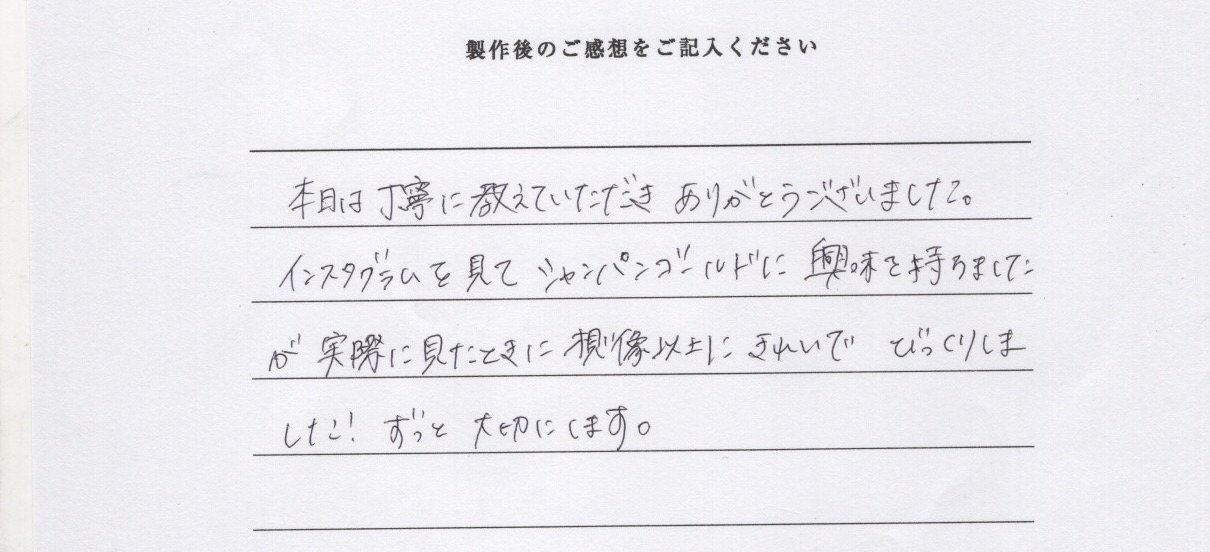 製作後のご感想をご記入ください
本日は丁寧に教えていただき ありがとうございました。
インスタグラムを見て シャンパンゴールドに 興味を持ちました
が 実際に見たときに 想像以上に きれいで びっくりしま
した! ずっと 大切にします。